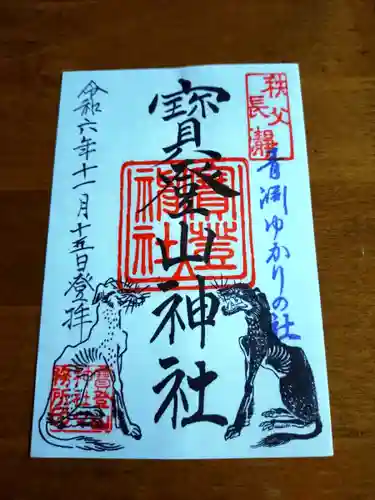 秩父
長瀞
青渊ゆかりの社
寳登山神社
寳登
山神
社
令和六年十一月十五日登拝
寳登山
神社社
務所印